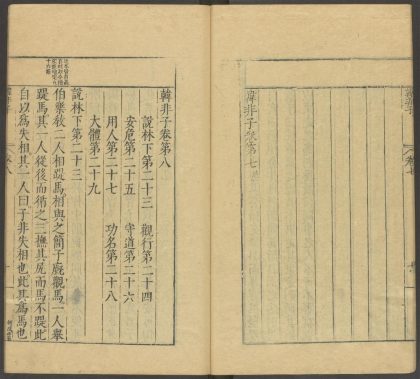 卷七
韓非子卷第七
韓非子卷第八
說林下第二十三　觀行第二十四
安危第二十五　守道第二十六
用人第二十七　功名第二十八
大體第二十九
說林下第二十三
伯樂教二人相踶馬相與之簡子廐觀馬一人舉
踶馬其一人從後而循之三撫其尻而馬不踶此
自以爲失相其一人曰子非失相也此其爲馬也
韓非子
卷八